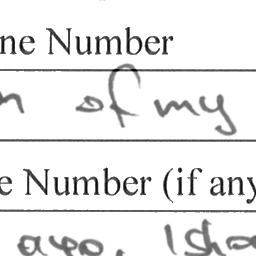 ne Number
n of my
e Number (if any
ago. I sho